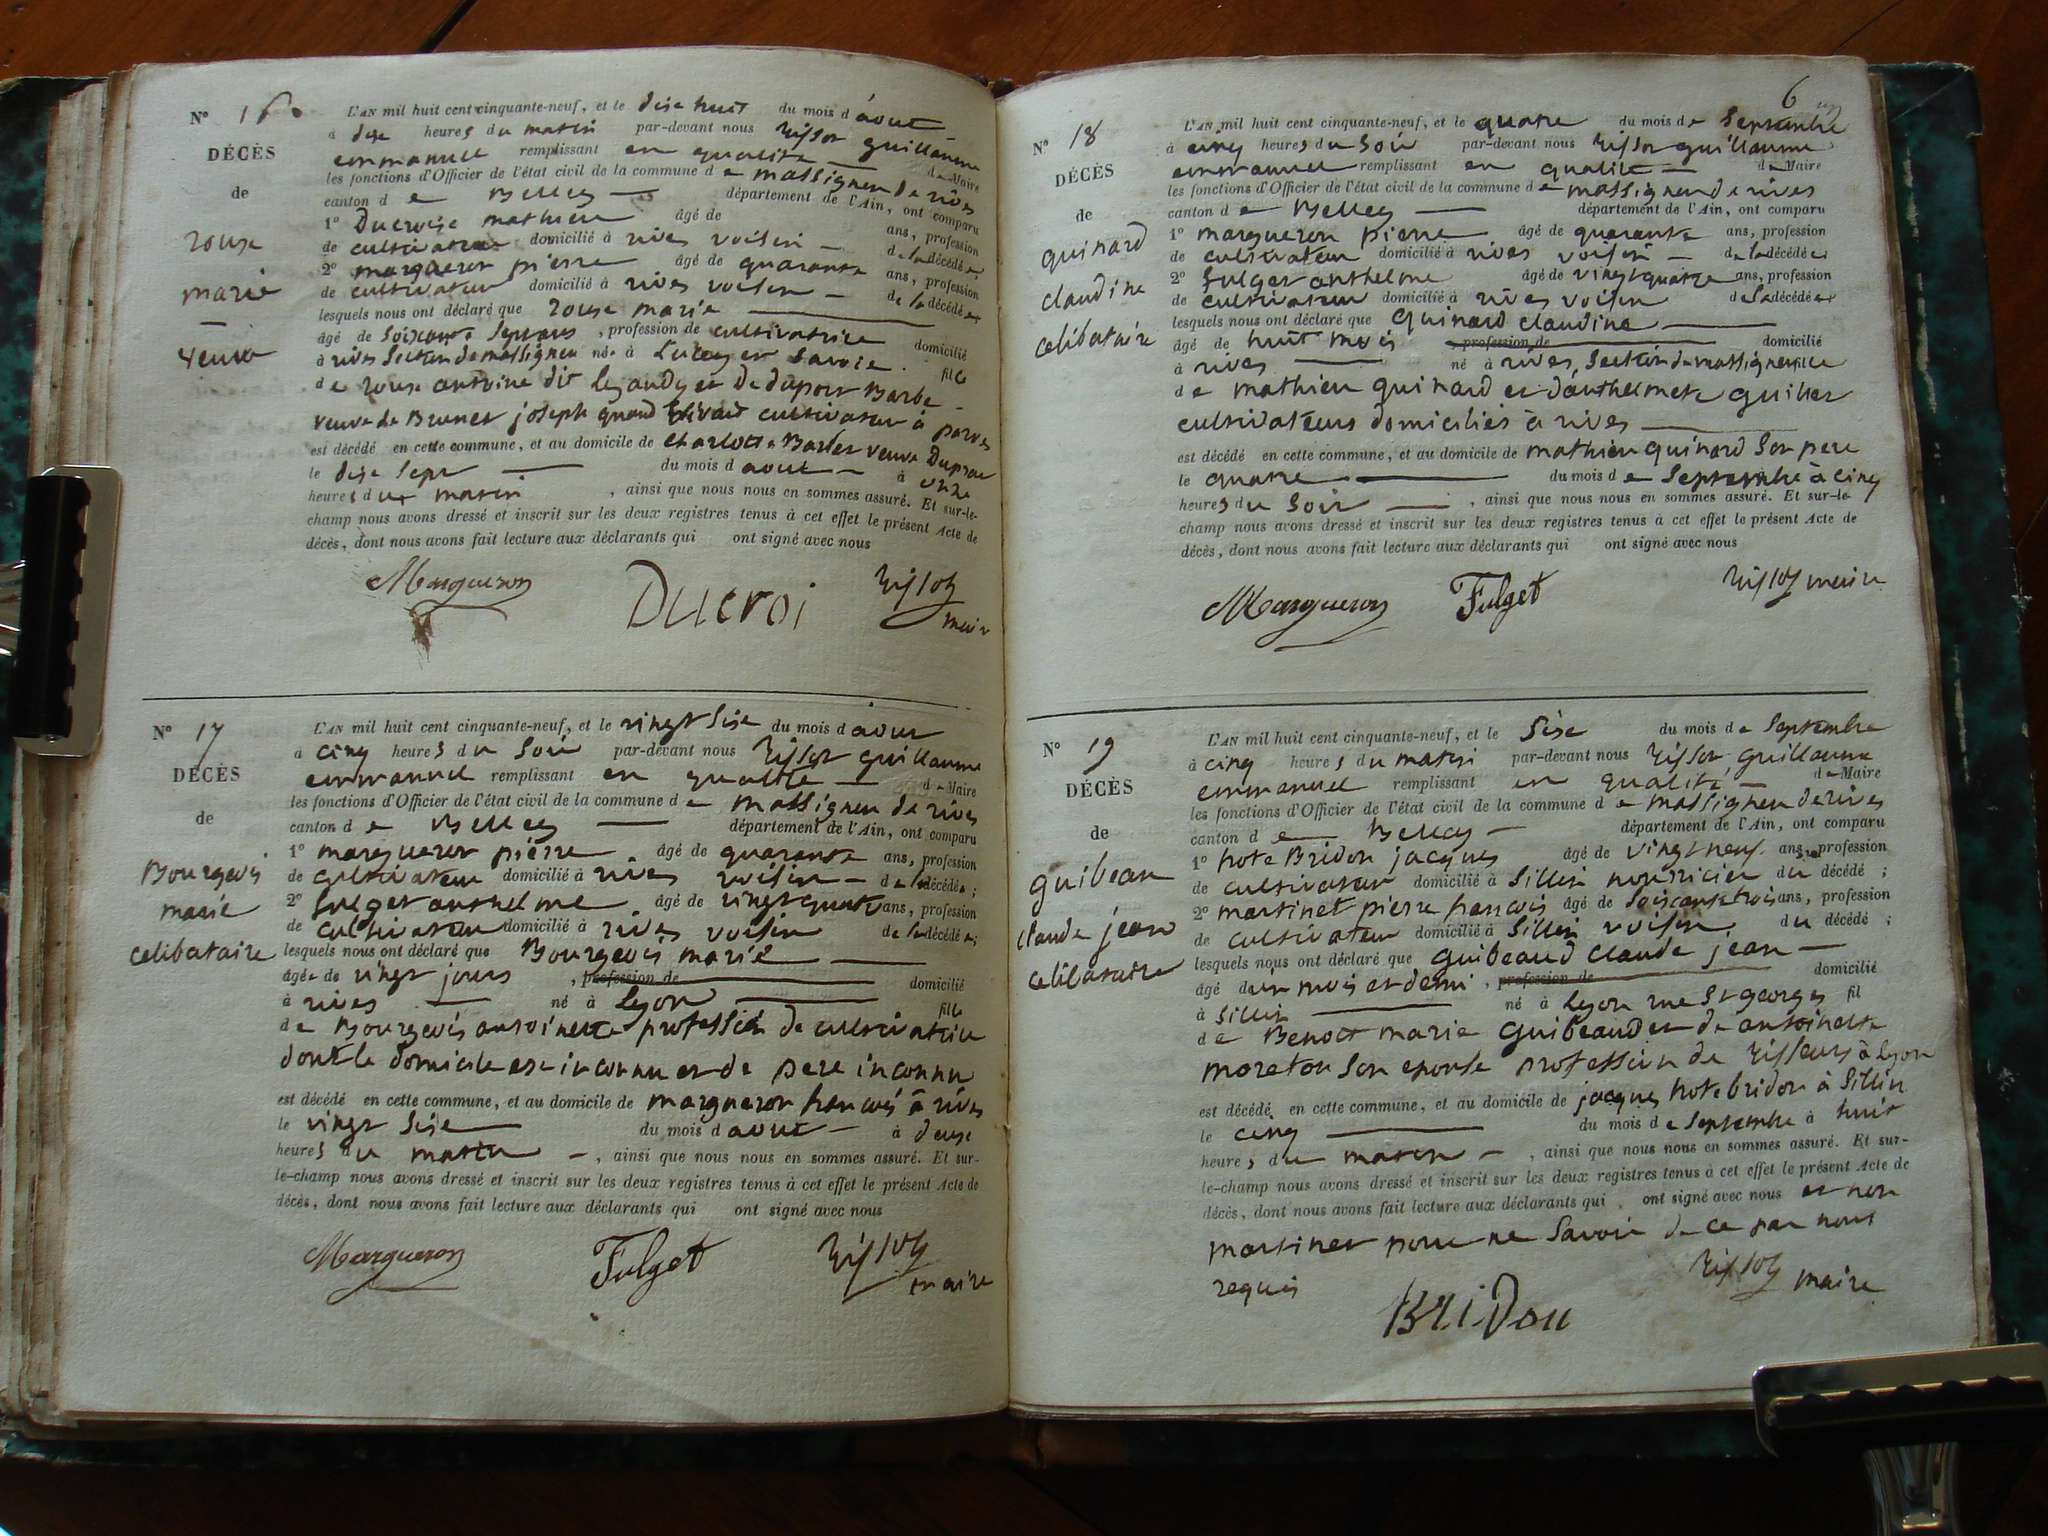 N° 16
DÉCÈS
de
rouse
marie
veuve
L'AN mil huit cent cinquante-neuf, et le dise huit du mois d'aout
à dise heures du matin par-devant nous guillaume
emmanuel remplissant en qualité de Maire
les fonctions d'Officier de l'état civil de la commune de massignieu de rives
canton de Belley département de l'Ain, ont comparu
1° Ducroise mathieu âgé de ans, profession
de cultivateur domicilié à rives voisin de la décédée;
2° margueron pierre âgé de quarante ans, profession
de cultivateur domicilié à rives voisin de la décédée
lesquels nous ont déclaré que rouse marie
âgé de soixante sept ans, profession de cultivatrice domicilié
à rives section de massignieu née à Lucey en Savoie fille
de rouse antoine dit et de dupont Barbe
veuve de Brunet joseph quand vivait cultivateur à parves
est décédé en cette commune, et au domicile de charlotte Barbet veuve
le dise sept du mois d'aout à onze
heures du matin, ainsi que nous nous en sommes assuré. Et sur-le-
champ nous avons dressé et inscrit sur les deux registres tenus à cet effet le présent Acte de
décès, dont nous avons fait lecture aux déclarants qui ont signé avec nous
Margueron Ducroi maire
N° 17
DÉCÈS
de
Bourgeois
marie
celibataire
L'AN mil huit cent cinquante-neuf, et le vingt sise du mois d'aout
à cinq heures du soir par-devant nous guillaume
emmanuel remplissant en qualité de Maire
les fonctions d'Officier de l'état civil de la commune de massignieu de rives
canton de Belley département de l'Ain, ont comparu
1° margueron pierre âgé de quarante ans, profession
de cultivateur domicilié à rives voisin de la décédée;
2° fulget anthelme âgé de vingt quatre ans, profession
de cultivateur domicilié à rives voisin de la décédée;
lesquels nous ont déclaré que Bourgeois marie
âgée de vingt jours, profession de domicilié
à rives né à Lyon fille
de Bourgeois antoinette profession de cultivatrice
dont le domicile est inconnu et de pere inconnu
est décédé en cette commune, et au domicile de margueron francois à rives
le vingt sise du mois d'aout à deuse
heures du matin, ainsi que nous nous en sommes assuré. Et sur-
le-champ nous avons dressé et inscrit sur les deux registres tenus à cet effet le présent Acte de
décès, dont nous avons fait lecture aux déclarants qui ont signé avec nous
Margueron Fulget maire
6
N° 18
DÉCÈS
de
guinard
claudine
celibataire
L'AN mil huit cent cinquante-neuf, et le quatre du mois de Septembre
à cinq heures du soir par-devant nous guillaume
emmanuel remplissant en qualité de Maire
les fonctions d'Officier de l'état civil de la commune de massignieu de rives
canton de Belley département de l'Ain, ont comparu
1° margueron pierre âgé de quarante ans, profession
de cultivateur domicilié à rives voisin de la décédée
2° fulget anthelme âgé de vingt quatre ans, profession
de cultivateur domicilié à rives voisin de la décédée
lesquels nous ont déclaré que guinard claudine
âgé de huit mois profession de domicilié
à rives né à rives, section de massignieu fille
de mathieu guinard et d'anthelmete
cultivateurs domiciliés à rives
est décédé en cette commune, et au domicile de mathieu guinard son pere
le quatre du mois de Septembre à cinq
heures du soir, ainsi que nous nous en sommes assuré. Et sur-le-
champ nous avons dressé et inscrit sur les deux registres tenus à cet effet le présent Acte de
décès, dont nous avons fait lecture aux déclarants qui ont signé avec nous
Margueron Fulget maire
N° 19
DÉCÈS
de
guibeau
claude jean
celibataire
L'AN mil huit cent cinquante-neuf, et le sise du mois de Septembre
à cinq heures du matin par-devant nous guillaume
emmanuel remplissant en qualité de Maire
les fonctions d'Officier de l'état civil de la commune de massignieu de rives
canton de Belley département de l'Ain, ont comparu
1° hote Bridon jacques âgé de vingt neuf ans, profession
de cultivateur domicilié à Sillin nourricier du décédé;
2° martinet pierre francois âgé de soiscante trois ans, profession
de cultivateur domicilié à Sillin voisin du décédé;
lesquels nous ont déclaré que guibeaud claude jean
âgé d'un mois et demi, profession de domicilié
à Sillin né à Lyon rue St georges fil
de Benoit marie guibeaud et de antoinette
moreton son epouse profession de à Lyon
est décédé en cette commune, et au domicile de jacques hote bridon à Sillin
le cinq du mois de Septembre à huit
heures du matin, ainsi que nous nous en sommes assuré. Et sur-
le-champ nous avons dressé et inscrit sur les deux registres tenus à cet effet le présent Acte de
décès, dont nous avons fait lecture aux déclarants qui ont signé avec nous et non
martinet pour ne savoir de ce par nous
requis
BRiDon maire